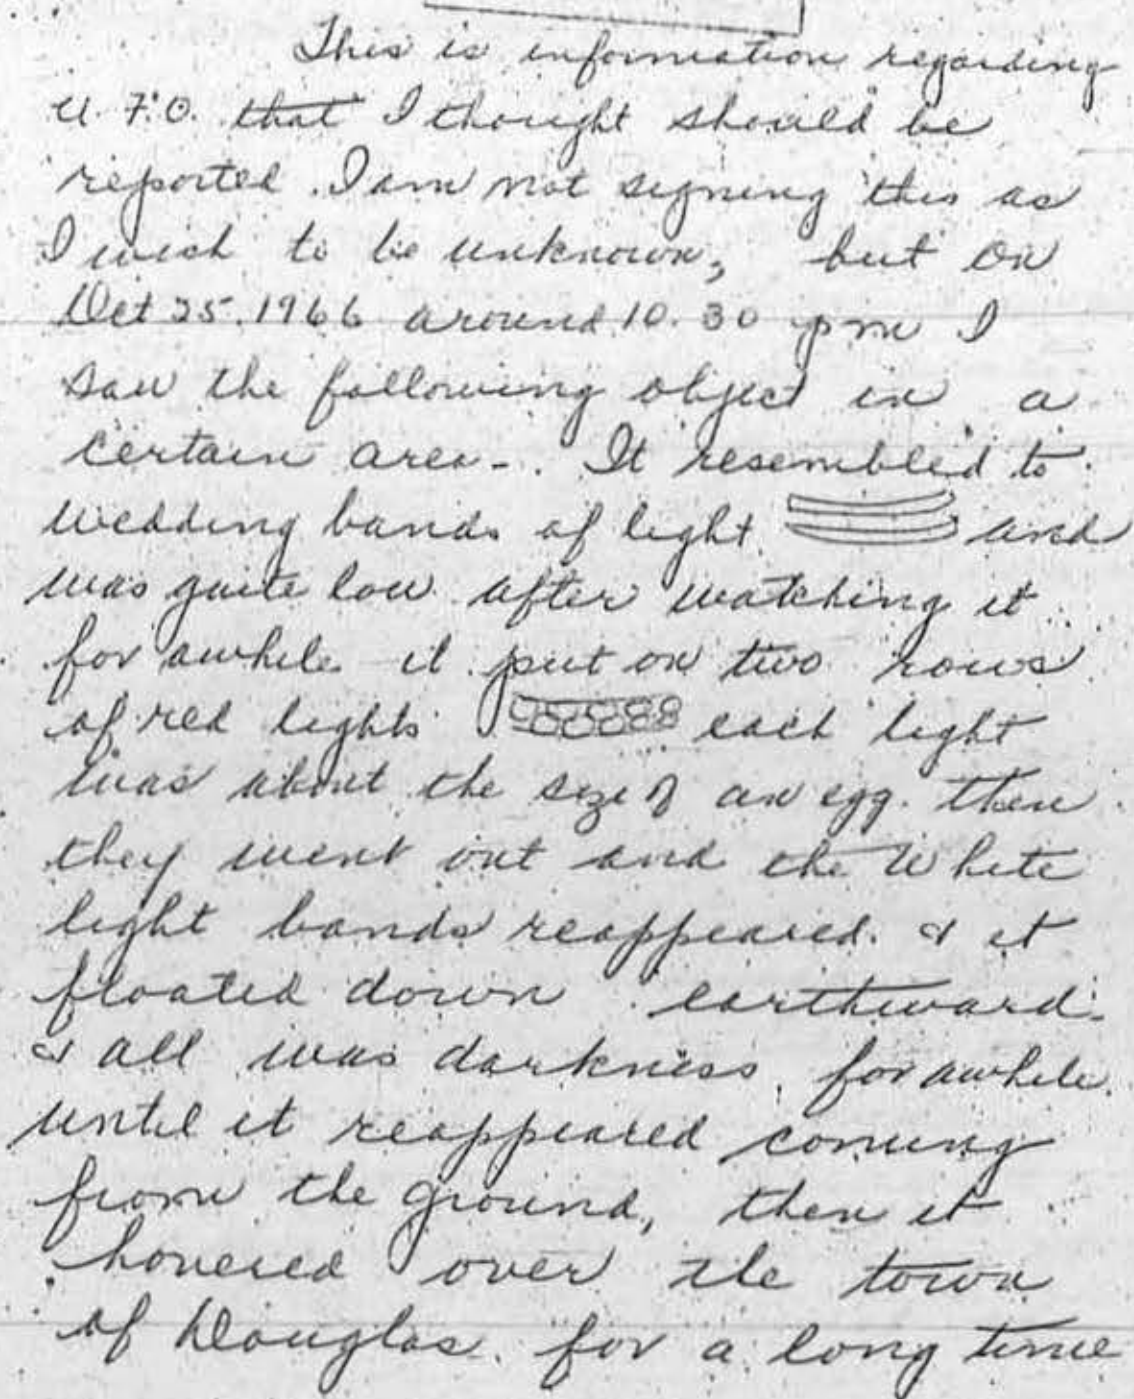 This is information regarding
U.F.O. that I thought should be
reported. I am not signing this as
I wish to be unknown, but on
Oct 25, 1966 around 10.30 pm I
saw the following object in a
certain area-. It resembled to
wedding bands of light and
was quite low after watching it
for awhile it put on two rows
of red lights each light
was about the size of an egg. then
they went out and the White
light bands reappeared. & it
floated down earthward.
& all was darkness, for awhile.
until it reappeared coming
from the ground, then it
hovered over the town
of Douglas. for a long time